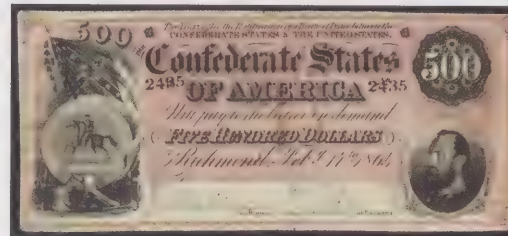 500
CONFEDERATE STATES & THE UNITED STATES.
Confederate States
500
2435 2435
OF AMERICA
Will pay to the bearer on demand
FIVE HUNDRED DOLLARS
Richmond, Feb. 17th, 1864